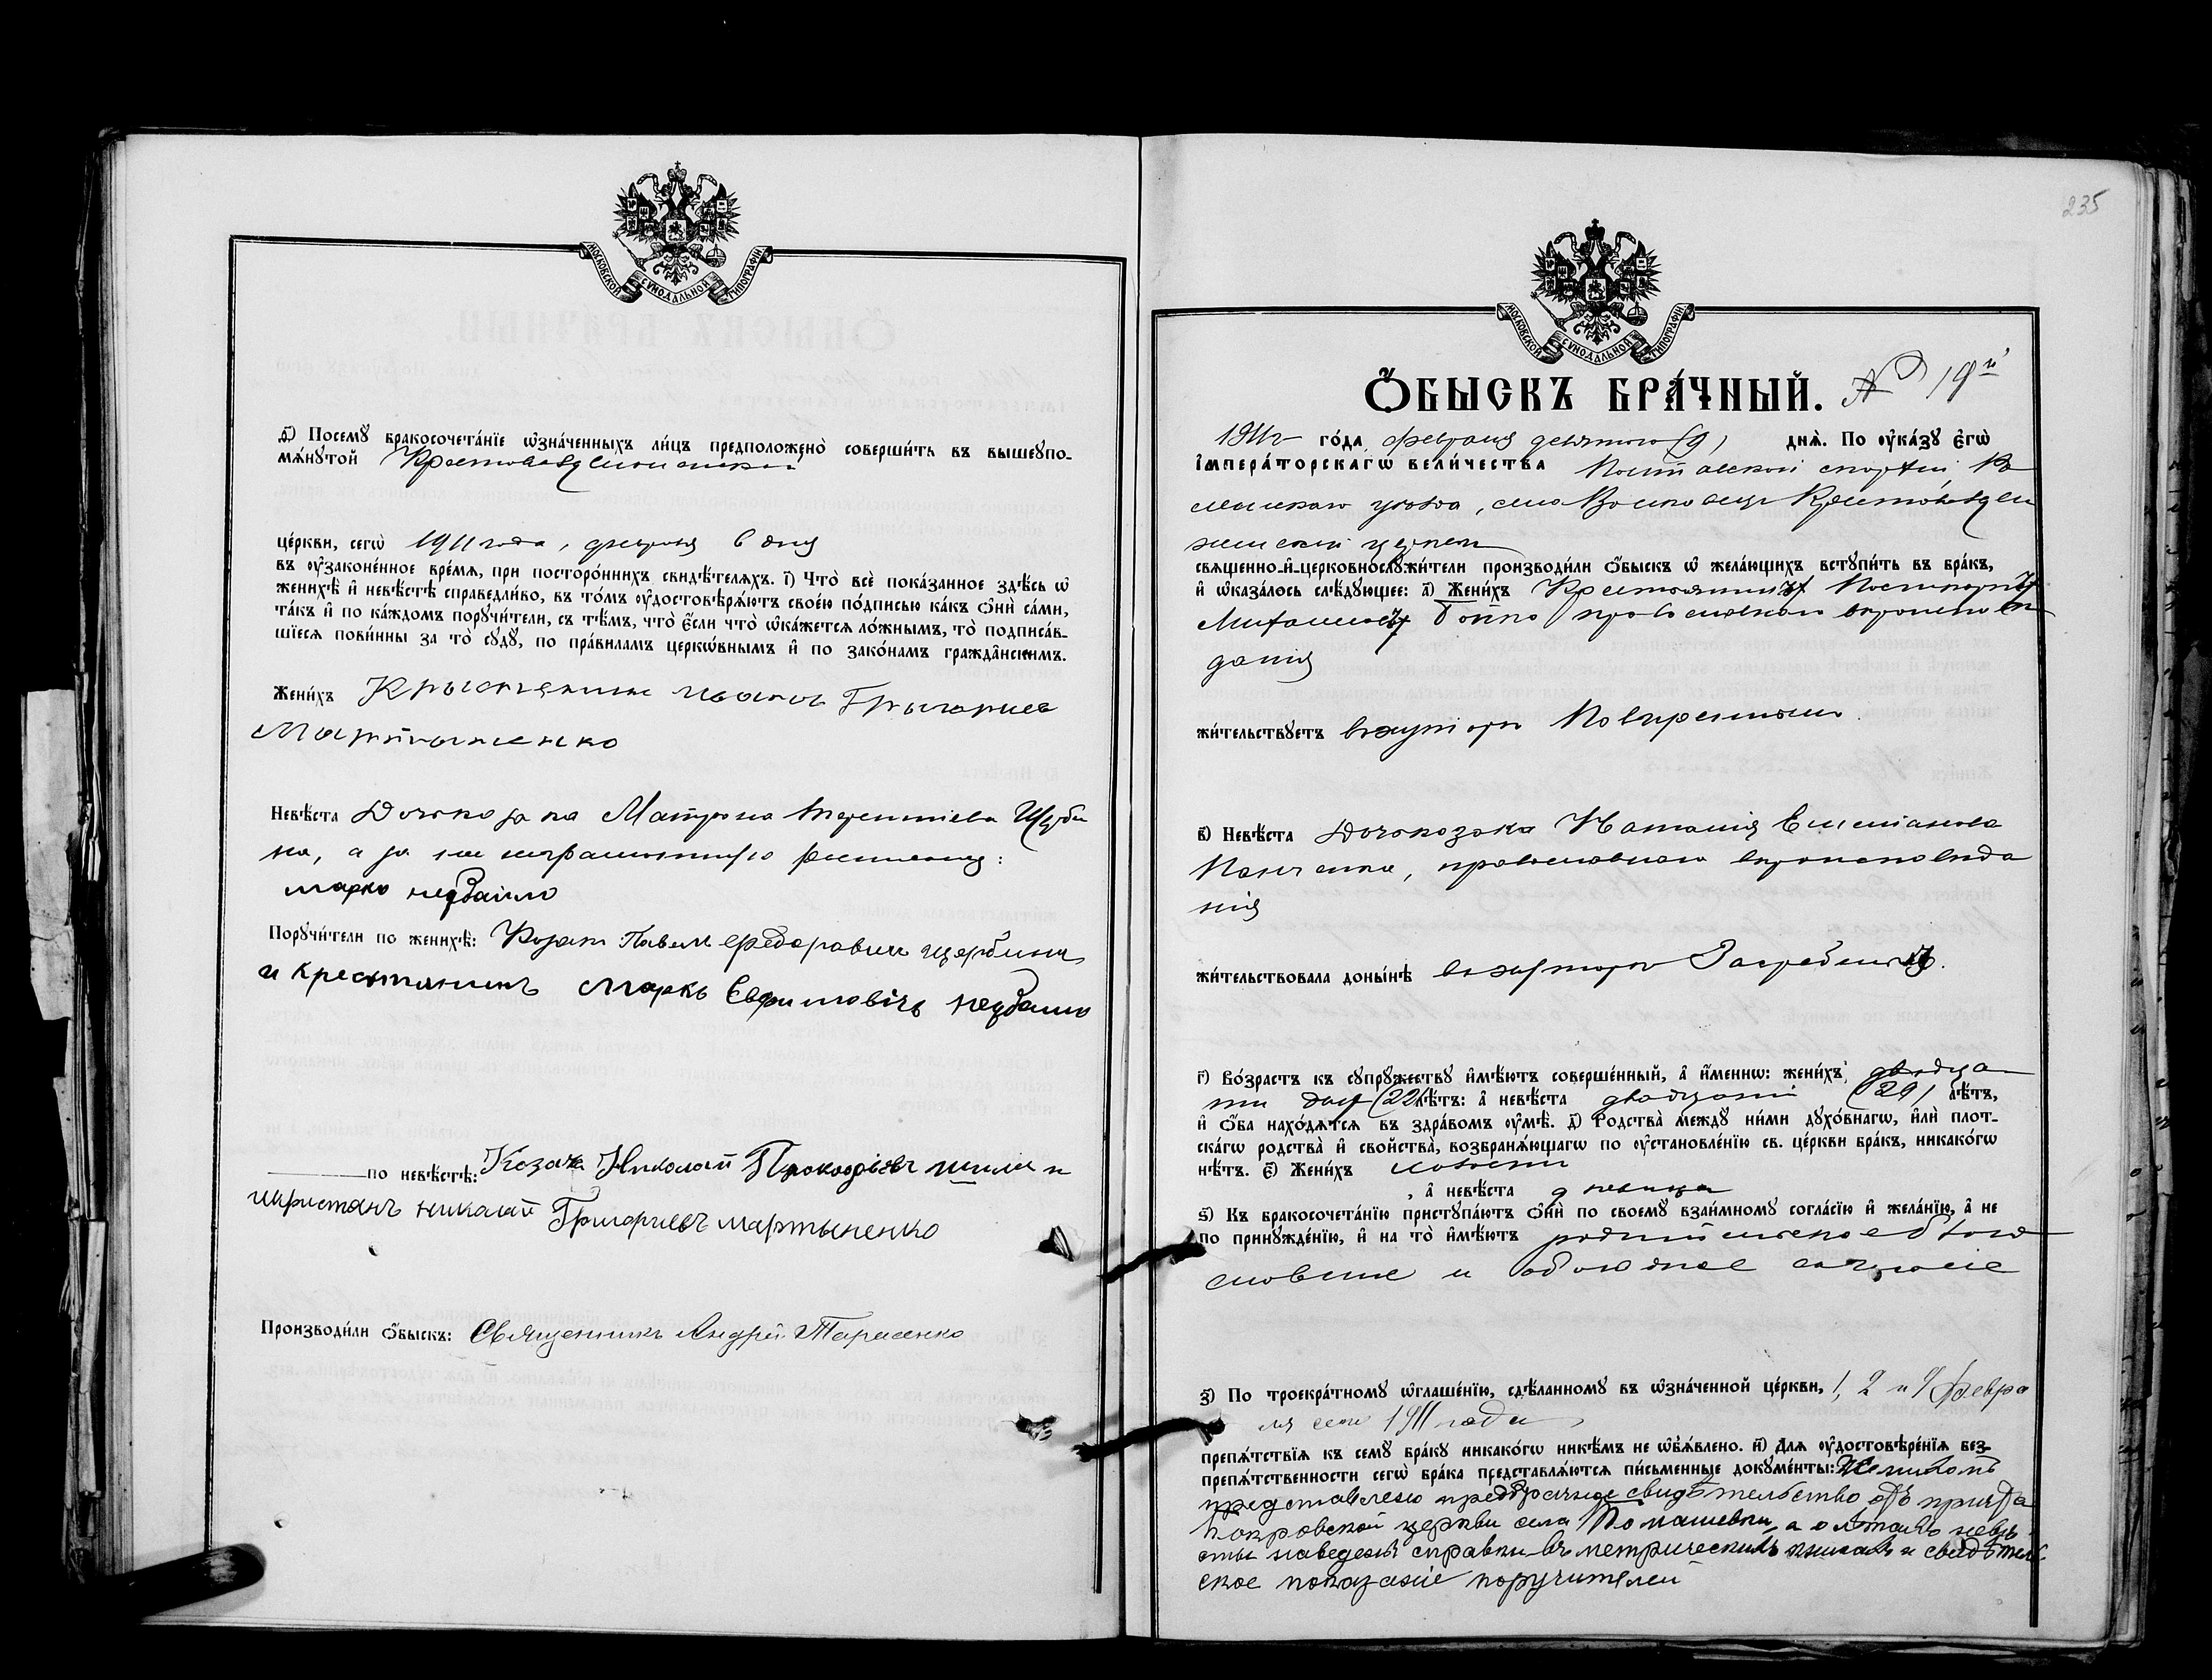 МОСКОВСКОЙ СѴНОДАЛЬНОЙ ТИПОГРАФІИ
д҃) Посемꙋ̀ бракосочета́нїе ѡ҆зна́ченныхъ ли́цъ предположено̀ соверши́ть въ вышеꙋпо-
мѧ́нꙋтой Крестовоздвиженской
це́ркви, сегѡ̀ 1911 года, февраля 6 дня
въ ᲂу҆зако́не́нное вре́мѧ, при посторо́ннихъ свидѣ́телѧхъ. і҃) Что̀ всѐ пока́занное здѣ́сь ѡ҆
женихѣ̀ и҆ невѣ́стѣ справедли́во, въ то́мъ ᲂу҆достовѣрѧ́ютъ свое́ю по́дписью ка́къ ѻ҆нѝ са́ми,
та́къ и҆ по ка́ждомъ порꙋчи́тели, съ тѣ́мъ, что̀ є҆́сли что̀ ѡ҆ка́жетсѧ ло́жнымъ, то̀ подписа́в-
шїесѧ пови́нны за то̀ сꙋдꙋ̀, по пра́виламъ церкѡ́внымъ и҆ по зако́намъ гражда̑нскимъ.
Жени́хъ Крыстянин Иванъ Грыгориев
Мартыненко
Невѣ́ста Дочь козака Матрона Терентіева Щерби
на, а за нея неграмотную росписался:
Марко недбайло
Порꙋчи́тели по женихѣ̀: Козакъ Павел Федоравич щербина
и крестянинъ Марко Евфимовічъ недбаило
по невѣ́стѣ: Козакъ Николай Прокофіевъ
николай Григориевъ мартыненко
Производи́ли ѻ҆́быскъ: Священникъ Андрей Тарасенко
235
МОСКОВСКОЙ СѴНОДАЛЬНОЙ ТИПОГРАФІИ
Ѻ҆́БЫСКЪ БРА́ЧНЫЙ. № 19й
1911 го́да февраля девятого (9) днѧ̀. По ᲂу҆ка́зꙋ є҆гѡ̀
і҆мпера́торскагѡ вели́чества Полтавской епархіи, Ро
менскаго уѣзда, села Крестовоздви
женской церкви
свѧще́нно-и҆-церковнослꙋжи́тели производи́ли ѻ҆́быскъ ѡ҆ жела́ющихъ встꙋпи́ть въ бра́къ,
и҆ ѡ҆каза́лось слѣ́дꙋющее: а҃) Жени́хъ Крестьянинъ
Бойко православнаго вѣроисповѣ
данія
жи́тельствꙋетъ въ хуторѣ
в҃) Невѣ́ста Дочь козака Наталія Емельянова
Панченко, православнаго вѣроисповѣда
нія
жи́тельствовала доны́нѣ въ хуторѣ
г҃) Во́зрастъ къ сꙋпрꙋ́жествꙋ и҆мѣ́ютъ соверше́нный, а҆ и҆́меннѡ: жени́хъ двадца
ти двух (22) лѣ́тъ: а҆ невѣ́ста двадцати (20) лѣ́тъ,
и҆ ѻ҆́ба нахо́дѧтсѧ въ здра́вомъ ᲂу҆мѣ̀. д҃) Родства̀ междꙋ̀ ни́ми дꙋхо́внагѡ, и҆лѝ плот-
ска́гѡ родства̀ и҆ сво́йства̀, возбранѧ́ющагѡ по ᲂу҆становле́нїю св. це́ркви бра́къ, никако́гѡ
нѣ́тъ. є҃) Жени́хъ холостъ
, а҆ невѣ́ста девица
ѕ҃) Къ бракосочета́нїю пристꙋпа́ютъ ѻ҆нѝ по своемꙋ̀ взаи́мномꙋ согла́сїю и҆ жела́нїю, а҆ не
по принꙋжде́нїю, и҆ на то̀ и҆мѣ́ютъ родительское благо
словеніе и обоюдное согласіе
з҃) По троекра́тномꙋ ѡ҆глаше́нїю, сдѣ́ланномꙋ въ ѡ҆зна́ченной це́ркви, 1, 2 и 9 февра
ля сего 1911 года
препѧ́тствїѧ къ семꙋ̀ бра́кꙋ никако́гѡ никѣ́мъ не ѡ҆б̾ѧ́влено. и҃) Длѧ ᲂу҆достовѣре́нїѧ без-
препѧ́тственности сегѡ̀ бра́ка представлѧ́ютсѧ пи́сьменные докꙋме́нты: Женихомъ
представлено предбрачное свидѣтельство отъ причта
Покровской церкви села Помашевки, а о лѣтахъ невѣ
сты наведены справки въ метрическихъ книгахъ и свидѣтель
ское показаніе поручителей